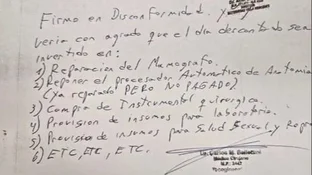 Firmo en Disconformidad. y
vería con agrado que el día descontado sea
invertido en:
1) Reparación del Mamógrafo.
2) Reponer el procesador Automático de Anatomía
(Ya reparado PERO NO PAGADO)
3) Compra de Instrumental quirúrgico.
4) Provisión de insumos para laboratorio.
5) Provisión de insumos para Salud Sexual y Repr
6) ETC, ETC, ETC.
M.P.